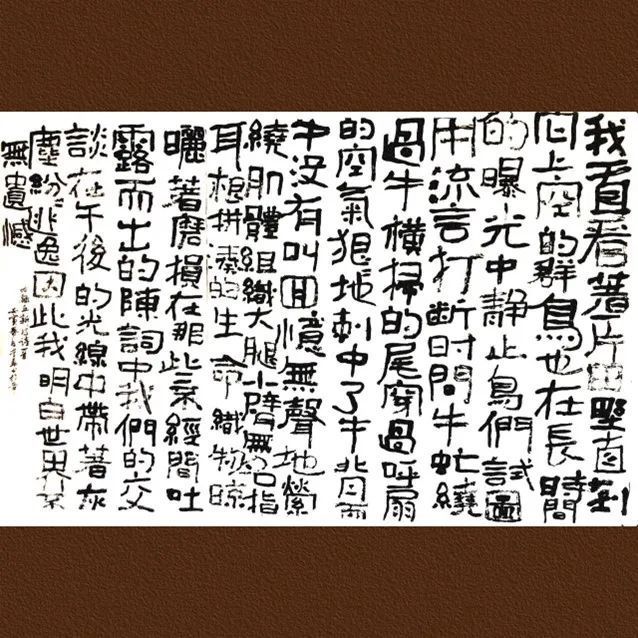 我看着著片田野直刺
向上空的群鳥也在長時間
的曝光中靜止鳥們試圖
用流言打斷時間牛虻繞
過牛橫掃的尾穿過呼扇
的空氣狠地刺中了牛背而
牛沒有叫回憶無聲地縈
繞肌體組織大腿小臂無名指
耳根拼湊的生命織物晾
曬著磨損在那些業經間吐
露而出的陳詞中我們的交
談在午後的光線中帶著灰
塵紛逃逸因此我明白世界業
無遺憾